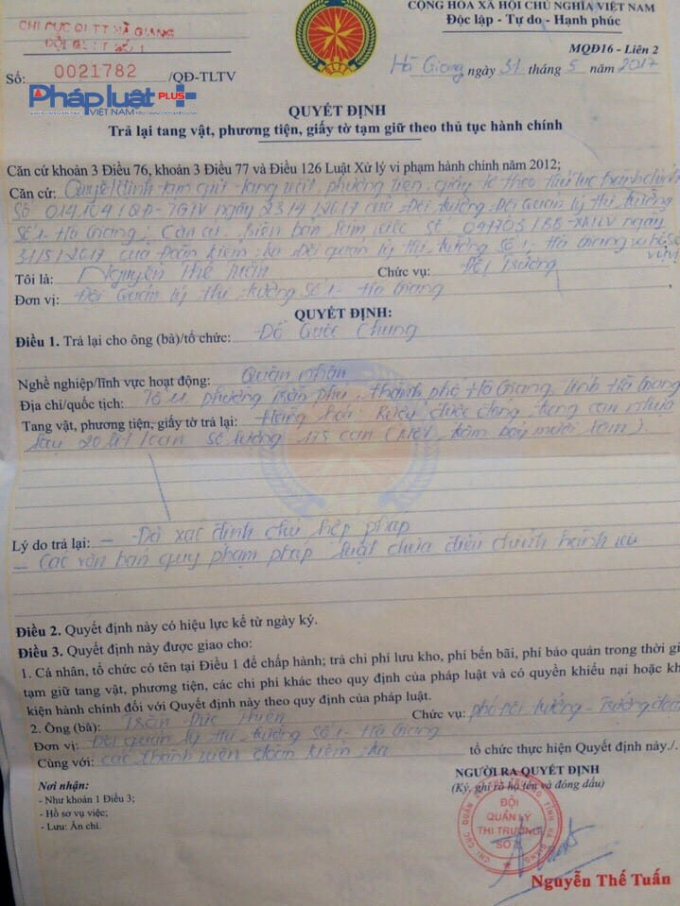 CỘNG HÒA XÃ HỘI CHỦ NGHĨA VIỆT NAM
Độc lập - Tự do - Hạnh phúc
CHI CỤC QLTT HÀ GIANG
ĐỘI QLTT SỐ 1
MQĐ16 - Liên 2
Số: 0021782 /QĐ-TLTV
Hà Giang, ngày 31 tháng 5 năm 2017
Pháp luật PLUS+
VIỆT NAM
QUYẾT ĐỊNH
Trả lại tang vật, phương tiện, giấy tờ tạm giữ theo thủ tục hành chính
Căn cứ khoản 3 Điều 76, khoản 3 Điều 77 và Điều 126 Luật Xử lý vi phạm hành chính năm 2012;
Căn cứ: Quyết định tạm giữ tang vật, phương tiện, giấy tờ theo thủ tục hành chính
Số /QĐ-TGTV ngày 23/4/2017 của Đội trưởng Đội Quản lý thị trường
Số 1- Hà Giang; Căn cứ biên bản làm việc số ngày
31/5/2017 của Đoàn kiểm tra Đội quản lý thị trường số 1- Hà Giang
Tôi là: Nguyễn Thế Tuấn Chức vụ: Đội Trưởng
Đơn vị: Đội Quản lý thị trường số 1- Hà Giang
QUYẾT ĐỊNH:
Điều 1. Trả lại cho ông (bà)/tổ chức: Đỗ Quốc Chung
Nghề nghiệp/lĩnh vực hoạt động: Quân nhân
Địa chỉ/quốc tịch: Tổ 11 phường Trần Phú, thành phố Hà Giang, tỉnh Hà Giang
Tang vật, phương tiện, giấy tờ trả lại: Hàng hóa: Rượu được đựng trong can nhựa
20 lít/can số lượng 175 can (Một trăm bảy mươi lăm).
Lý do trả lại: - Đã xác định chủ hợp pháp
- Các văn bản quy phạm pháp luật chưa điều chỉnh hành vi
Điều 2. Quyết định này có hiệu lực kể từ ngày ký.
Điều 3. Quyết định này được giao cho:
1. Cá nhân, tổ chức có tên tại Điều 1 để chấp hành; trả chi phí lưu kho, phí bến bãi, phí bảo quản trong thời gi
tạm giữ tang vật, phương tiện, các chi phí khác theo quy định của pháp luật và có quyền khiếu nại hoặc kh
kiện hành chính đối với Quyết định này theo quy định của pháp luật.
2. Ông (bà): Trần Đức Hiển Chức vụ: phó Đội trưởng - Trưởng đoàn
Đơn vị: Đội quản lý thị trường số 1- Hà Giang
Cùng với: các thành viên đoàn kiểm tra tổ chức thực hiện Quyết định này./.
Nơi nhận:
- Như khoản 1 Điều 3;
- Hồ sơ vụ việc;
- Lưu: Ấn chỉ.
NGƯỜI RA QUYẾT ĐỊNH
(Ký, ghi rõ họ tên và đóng dấu)
ĐỘI
QUẢN LÝ
THỊ TRƯỜNG
SỐ 1
Nguyễn Thế Tuấn